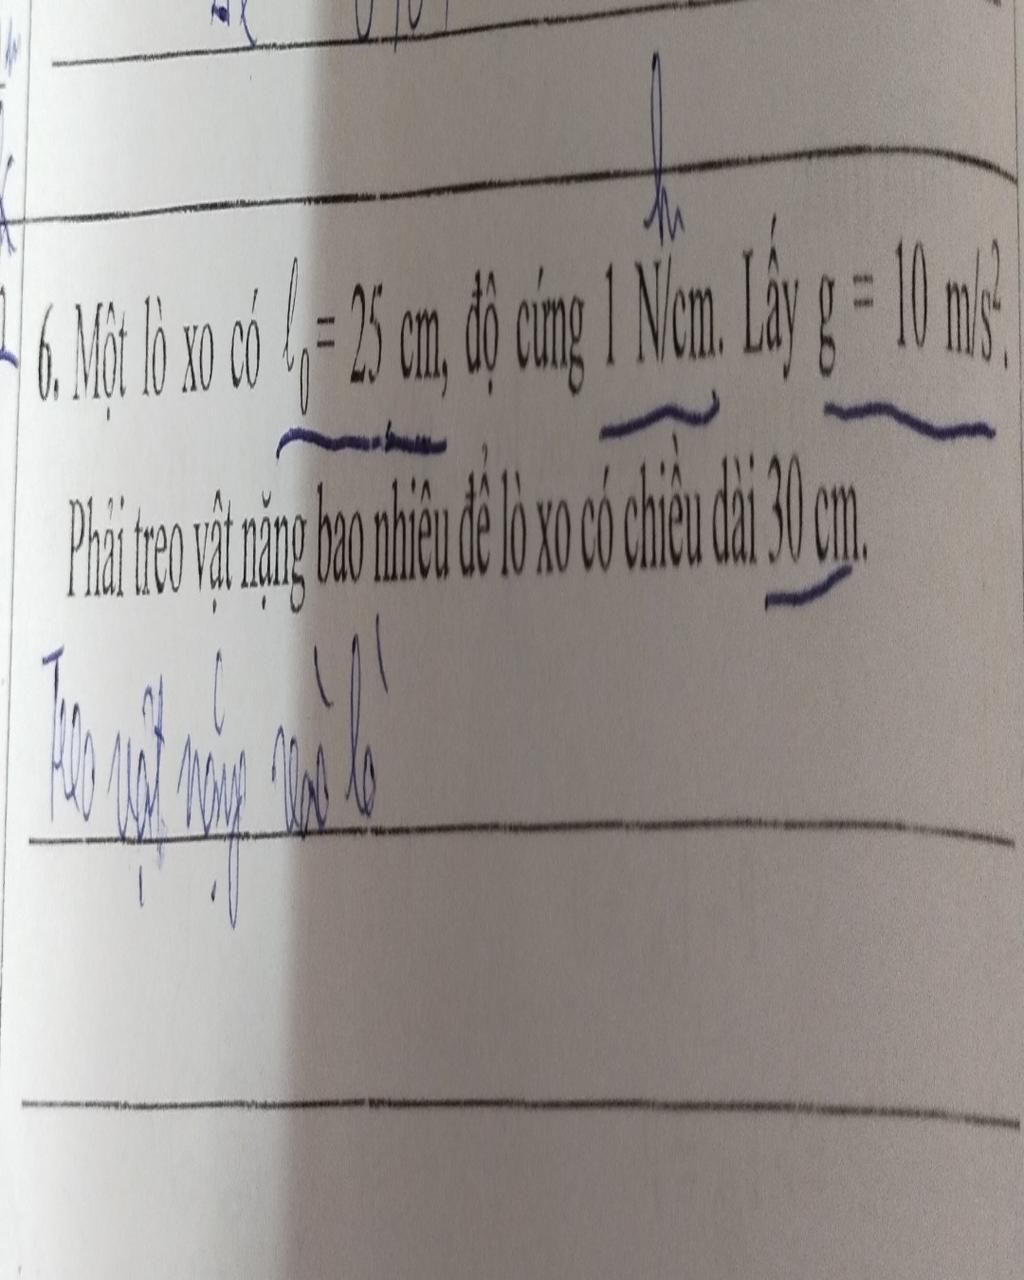 k
6. Một lò xo có l₀ = 25 cm, độ cứng 1 N/cm. Lấy g = 10 m/s².
Phải treo vật nặng bao nhiêu để lò xo có chiều dài 30 cm.
Treo vật nặng vào lò